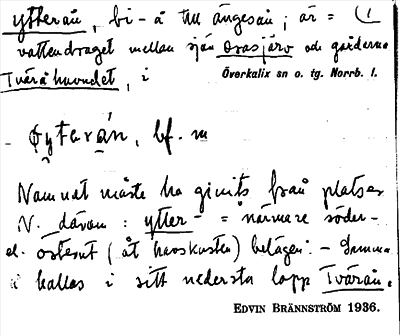 ytterån, bi-å till ängesån; är = (1
vattendraget mellan sjön Orasjärv och gårdarna
Tvåråhuvudet, i
Överkalix sn o. tg. Norrb. l.
- ytarån, bf. m
Namnet måste ha givits från platser
N. därom: ytter- = närmare söder-
el. österut (åt havskusten) belägen. - Samma
å kallas i sitt nedersta lopp Tvärån.
EDVIN BRÄNNSTRÖM 1936.